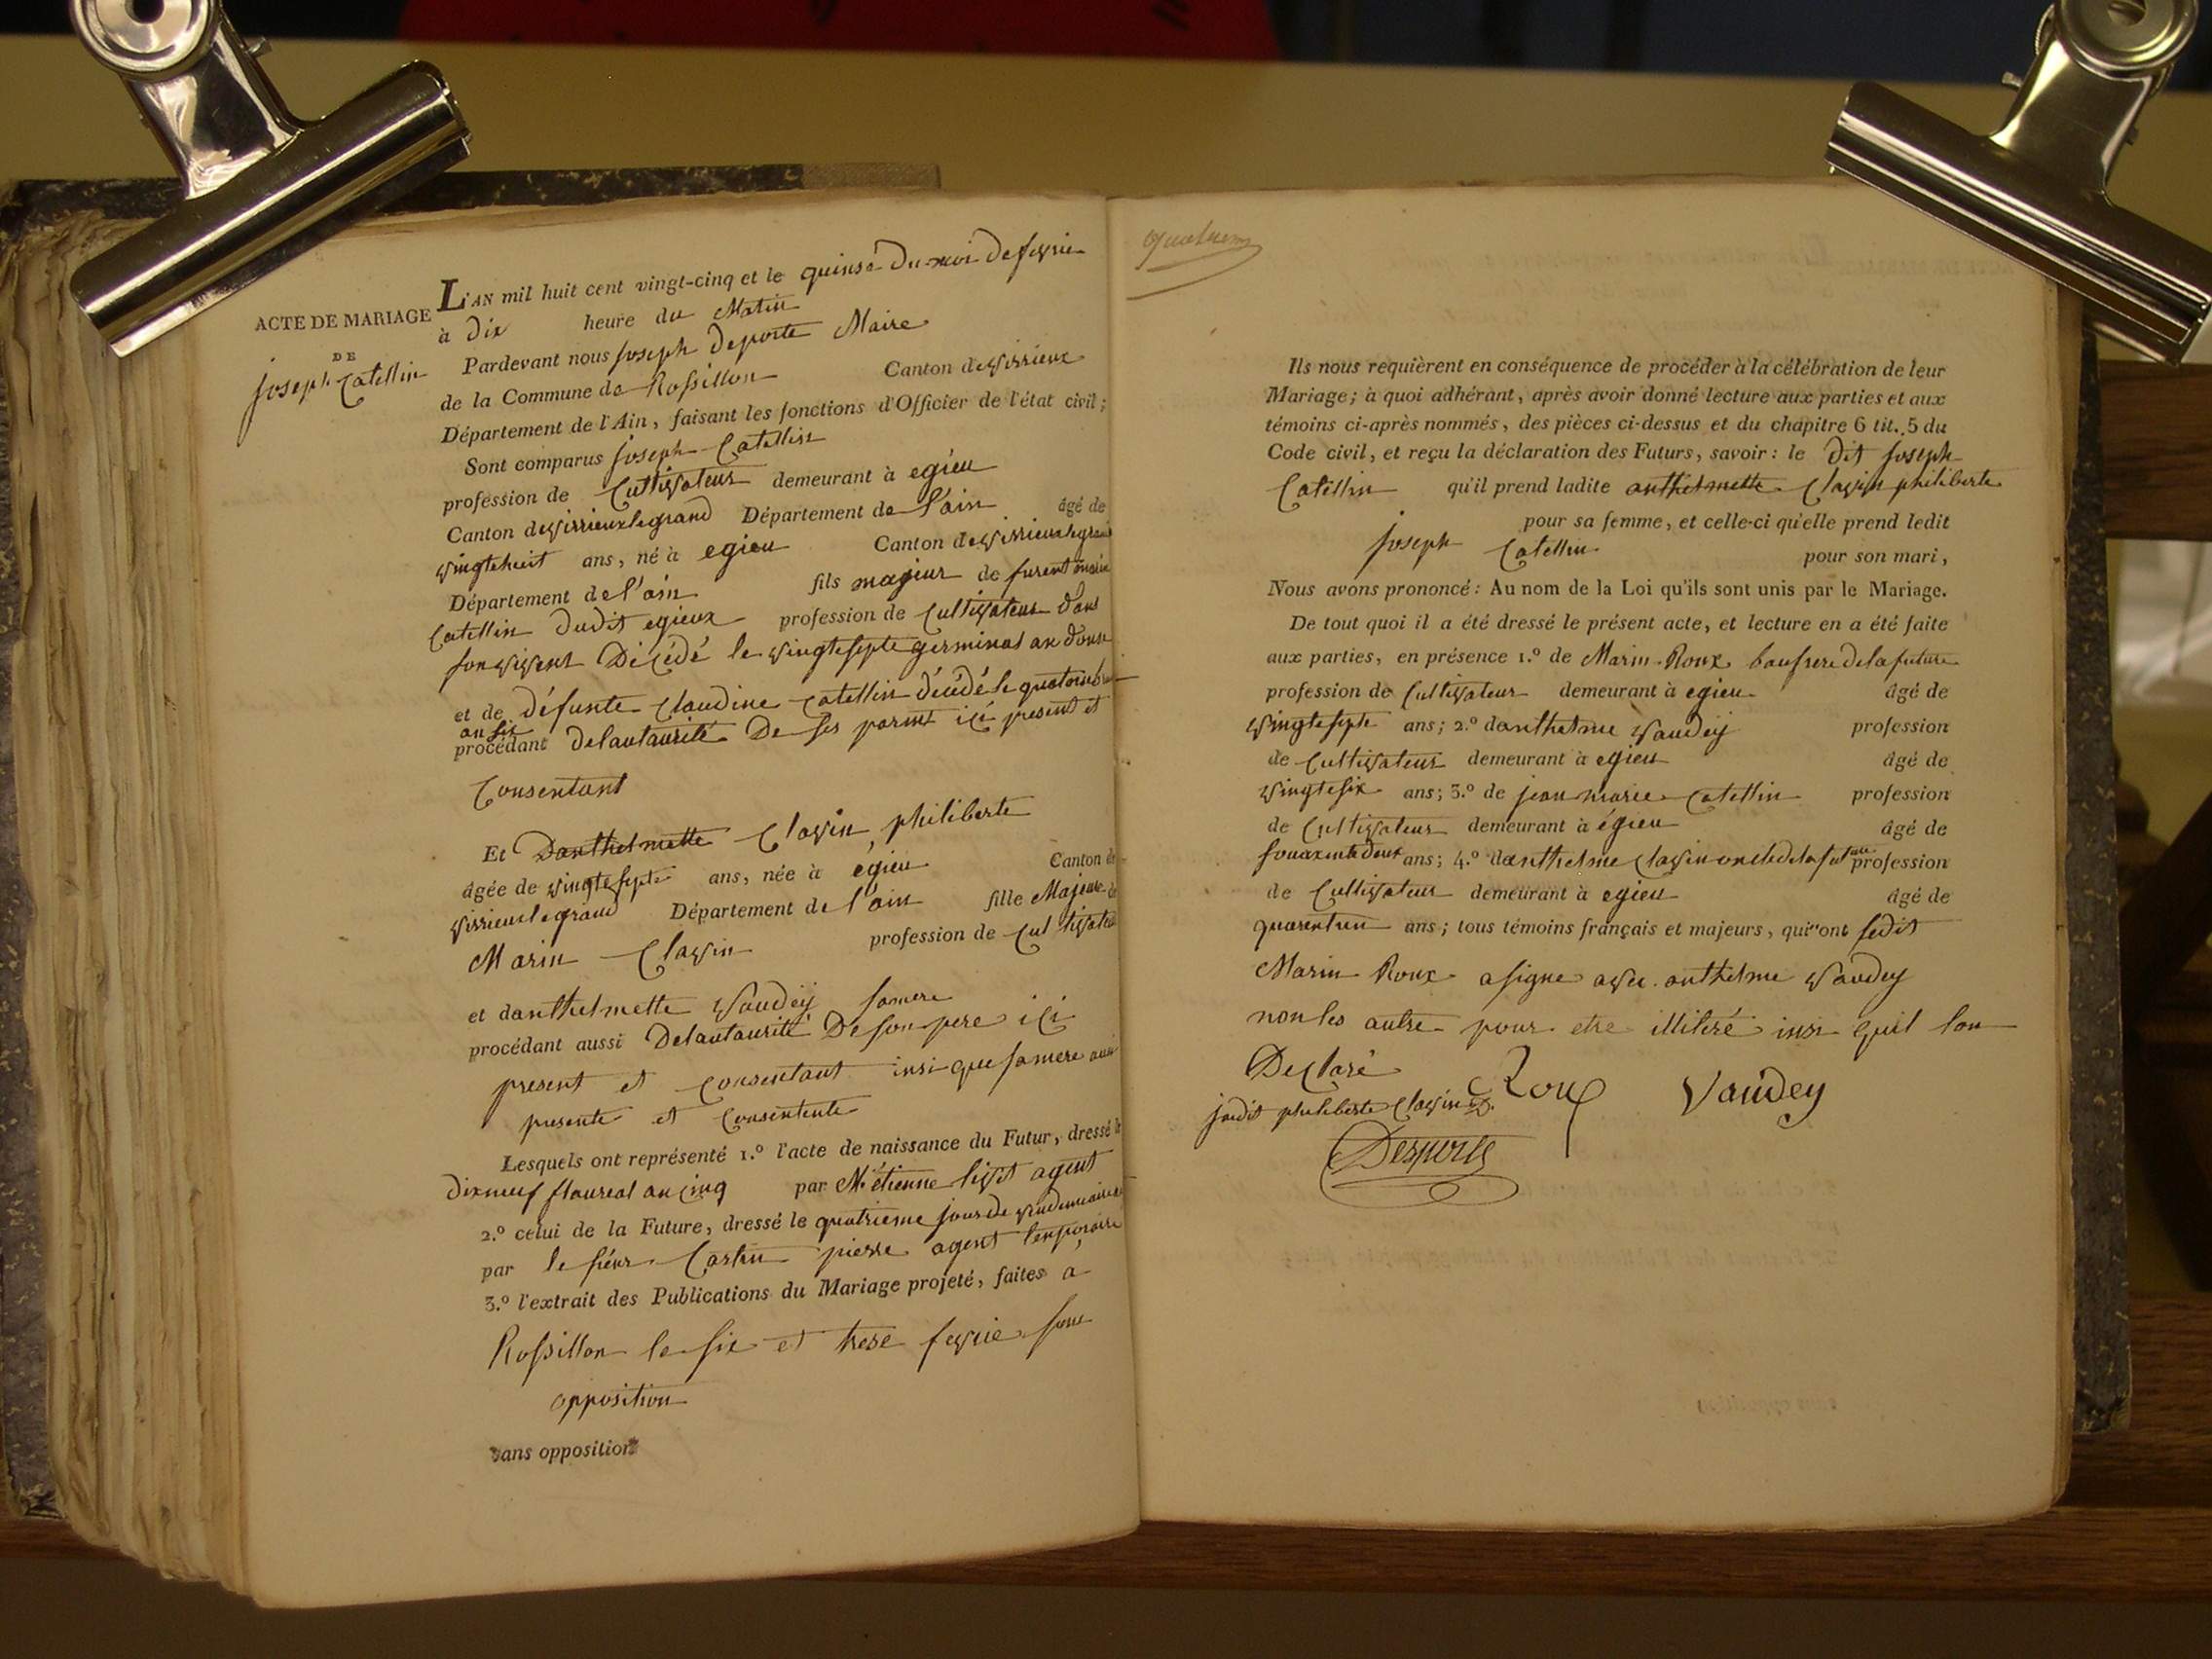 ACTE DE MARIAGE
DE
joseph Catellin
L'AN mil huit cent vingt-cinq et le quinse du moi de fevrie
à dix heure du Matin
Pardevant nous joseph deporte Maire
de la Commune de Rossillon Canton de virrieux
Département de l'Ain, faisant les fonctions d'Officier de l'état civil;
Sont comparus joseph Catellin
profession de Cultivateur demeurant à egieu
Canton de virrieux legrand Département de l'ain âgé de
vingtehuit ans, né à egieu Canton de virrieux legrand
Département de l'ain fils majeur de furent
Catellin dudit egieux profession de Cultivateur
son vivent Décédé le vingtesepte germinal an
et de défunte Claudine Catellin décédé le
an six
procédant delautaurité De ses parent ici present et
Consentant
Et Danthelmette Clavin philiberte
âgée de vingtesepte ans, née à egieu Canton de
virrieulegrand Département de l'ain fille Majeure de
Marin Clavin profession de Cultivateu
et danthelmette Vaudey samere
procédant aussi Delautaurité De son pere ici
present et Consentant insi que samere
presente et Consentente
Lesquels ont représenté 1.º l'acte de naissance du Futur, dressé le
dixneuf flaureal an cinq par M. étienne livet agent
2.º celui de la Future, dressé le quatrieme jour de
par le siéur Castin pierre agent temporaire
3.º l'extrait des Publications du Mariage projeté, faites a
Rossillon le six et trese fevrie
opposition
sans opposition
Ils nous requièrent en conséquence de procéder à la célébration de leur
Mariage; à quoi adhérant, après avoir donné lecture aux parties et aux
témoins ci-après nommés, des pièces ci-dessus et du chapitre 6 tit. 5 du
Code civil, et reçu la déclaration des Futurs, savoir: le dit joseph
Catellin qu'il prend ladite anthelmette Clavin philiberte
pour sa femme, et celle-ci qu'elle prend ledit
joseph Catellin pour son mari,
Nous avons prononcé: Au nom de la Loi qu'ils sont unis par le Mariage.
De tout quoi il a été dressé le présent acte, et lecture en a été faite
aux parties, en présence 1.º de Marin Roux baufrere de la future
profession de Cultivateur demeurant à egieu âgé de
vingtesepte ans; 2.º danthelme Vaudey profession
de Cultivateur demeurant à egieu âgé de
vingtesix ans; 3.º de jean marie Catellin profession
de Cultivateur demeurant à égieu âgé de
souaxinte deux ans; 4.º danthelme Clavin oncle de la future profession
de Cultivateur demeurant à egieu âgé de
quarentun ans; tous témoins français et majeurs, qui ont ledit
Marin Roux a signe avec anthelme Vaudey
non les autre pour etre illiteré insi quil lon
Declaré
philiberte Clavin
Roux
Vaudey
Desporte